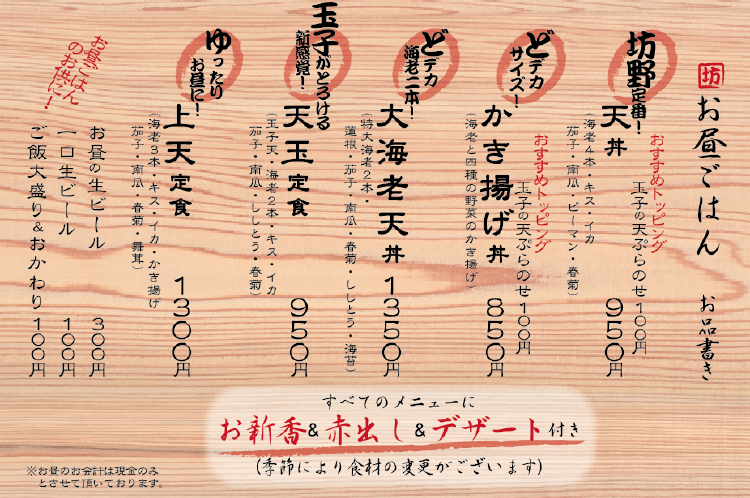 坊
お昼ごはん
お品書き
坊野定番！
天丼
９５０円
（海老４本・キス・イカ
茄子・南瓜・ピーマン・春菊）
おすすめトッピング
玉子の天ぷらのせ １００円
どデカ
サイズ！
かき揚げ丼
８５０円
（海老と四種の野菜のかき揚げ）
おすすめトッピング
玉子の天ぷらのせ １００円
どデカ
海老二本！
大海老天丼
１３５０円
（特大海老２本・
蓮根・茄子・南瓜・春菊・ししとう・海苔）
玉子がとろける
新感覚！
天玉定食
９５０円
（玉子天・海老２本・キス・イカ
茄子・南瓜・ししとう・春菊）
ゆったり
お昼に！
上天定食
１３００円
（海老３本・キス・イカ・かき揚げ
茄子・南瓜・春菊・舞茸）
お昼ごはん
のお供に！
お昼の生ビール ３００円
一口生ビール １００円
ご飯大盛り＆おかわり １００円
すべてのメニューに
お新香＆赤出し＆デザート付き
（季節により食材の変更がございます）
※お昼のお会計は現金のみ
とさせて頂いております。